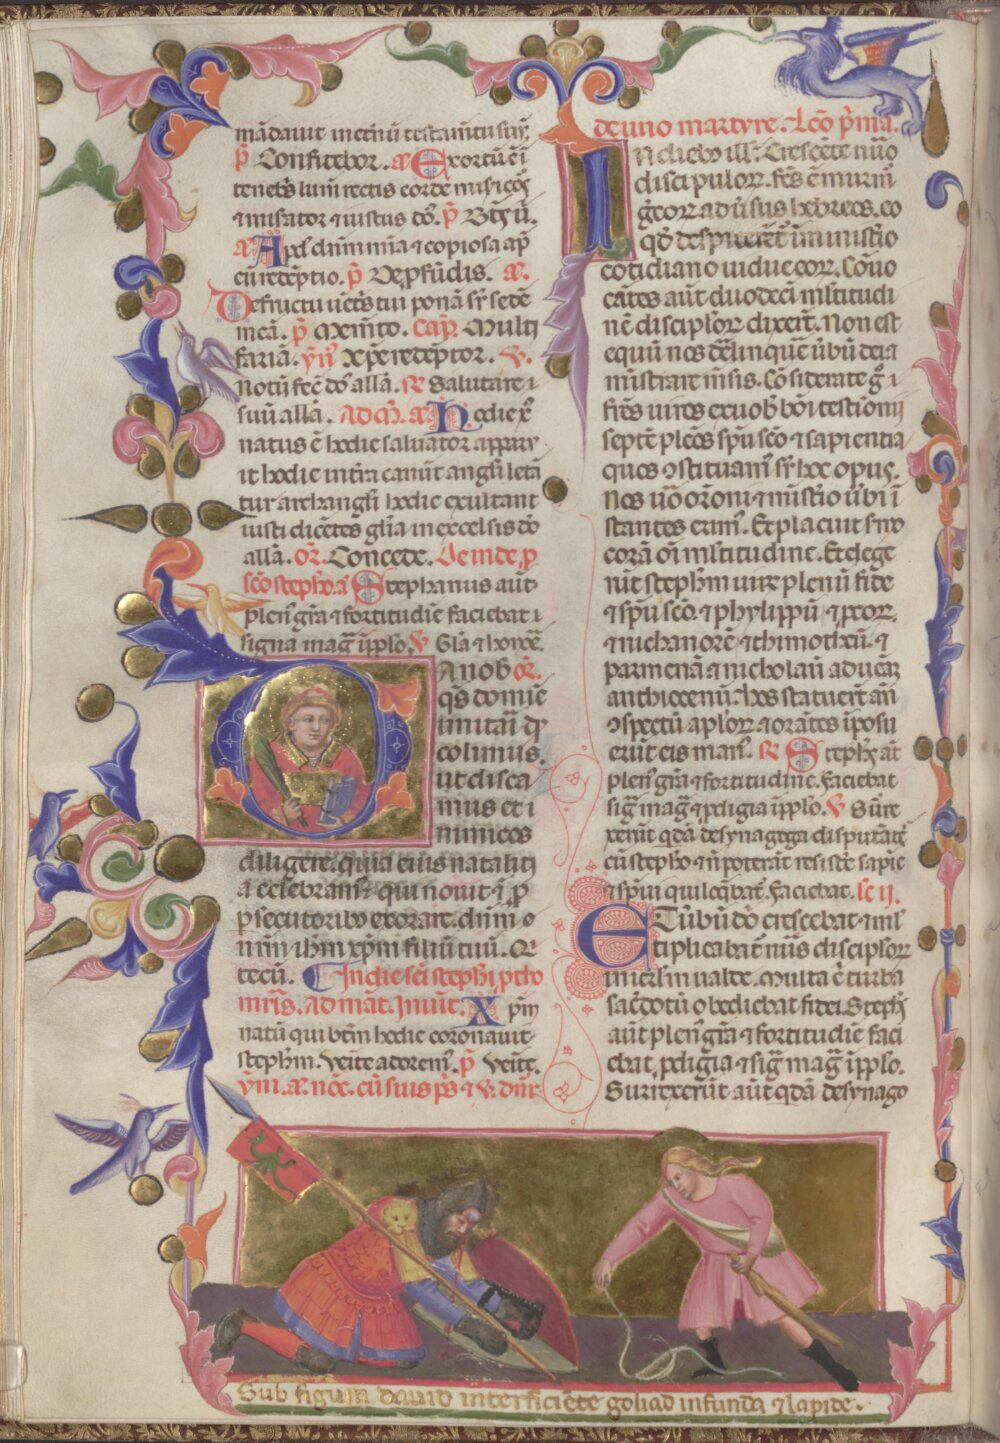 mādauit in eternū testamētu suū;
p̄ Confitebor. a̅ Exortū ē i
tenebris lum̄ rectis corde misicors
⁊ misator ⁊ iustus dn̄s. p̄ Bt̄s ū.
a̅ Apd̄ dn̄m mīa ⁊ copiosa ap̄
eū redēptio. p̄ De p̄fūdis. a̅.
De fructu uētris tui ponā sr̄ sedē
meā. p̄ Memēto. Cap̄. Multi
fariā. ym̄ Xp̄e redēptor. ℣.
Notū fec̄ dn̄s allā. ℟ Salutare
suū allā. Ad m̄. a̅ Hodie xp̄s
natus ē hodie saluator appar
uit hodie in tīra canūt angl̄i letā
tur archangl̄i hodie exultant
iusti dicētes glīa in excelsis dō
allā. or̄. Concede. Deinde p̄
sc̄o stephō. a̅ Stephanus aūt
plen̄ grā ⁊ fortitudīe faciebat
signa maḡ ī pplo. ℣ Glā ⁊ honōe.
Da nob̄ or̄.
q̄s domīe
imitari q̄
colimus.
ut disca
mus et i
nimicos
diligere. quia eius natalitī
a celebram̄. qui nouit ī p̄
psecutorib⁊ exorare. dn̄m n
r̄m ihm̄ xp̄m filiū tuū. Q
tecū. In die sc̄i stephī ptho
mr̄is. Ad māt. Inuit̄. Xp̄m
natū qui btm̄ hodie coronauit
steph̄m. Venite adorem̄. p̄ Venite.
ym̄. a̅. noc̄. cū suis ps̄ ⁊ ℣.
de uno martyre. Lcō p̄ma.
In dieb⁊ ill̄. Crescēte nūo
discipulor̄. fc̄s ē murm̄
grecor̄ adūsus hebreos. eo
qd̄ despiceret̄ in ministrio
cotidiano uidue eor̄. Cōuo
cātes aūt duodecī mltitudi
nē disciplor̄ dixer̄t. Non est
equū nos derelinquē ūbū dei ⁊
ministrare mēsis. Cōsiderate g̊
fr̄es uiros ex uob̄ boni testionī
septē plēos spū scō ⁊ sapientia
quos ↄstituam̄ sr̄ hoc opus.
Nos uō orōni ⁊ mīst̄io ūbi ī
stantes erim̄. Et placuit s̄mo
corā oī mltitudine. Et elege
rūt steph̄m uirū plenū fide
⁊ spū scō. ⁊ phylippū ⁊ pcor̄.
⁊ nichanorē ⁊ thimothēū. ⁊
parmenā ⁊ nicholaū aduenā
anthiocenū. hos statuer̄t an̄
ↄspectū aplor̄ ⁊ orātes īposu
erūt eis man̄. ℟ Steph̄s aūt
plen̄ grā ⁊ fortitudine. faciebat
siḡ maḡ ⁊ pdigia ī pplo. ℣ Surre
xerūt qdā de synagoga disputātes
cū stepho ⁊ n̄ poterāt resistē sapīe
⁊ spūi qui loq̄bat̄. Faciebat. Lc̄ ij.
Et ūbū dn̄i crescebat ⁊ ml
tiplicabat̄ nūs disciplor̄
in ierl̄m ualde. Multa ē turba
sac̄dotū obediebat fidei. Steph̄s
aūt plen̄ grā ⁊ fortitudīe faci
ebat pdigia ⁊ siḡ maḡ ī pplo.
Surrexerūt aūt qdā de synago
Sub figura dauid interficiēte goliad in funda ⁊ lapide.